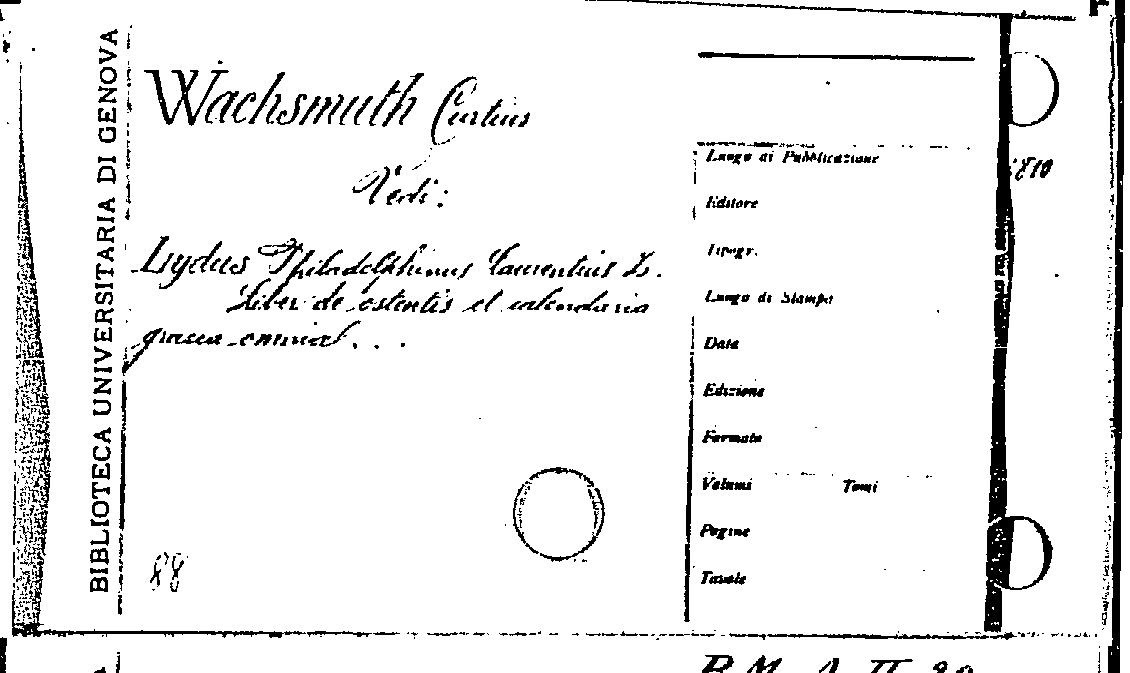 BIBLIOTECA UNIVERSITARIA DI GENOVA
Wachsmuth Curtius
Vedi:
Lydus Philadelphinus Laurentius L.
Liber de ostentis et calendaria
graeca omnia . . .
88
Luogo di Pubblicazione
Editore
Tipogr.
Luogo di Stampa
Data
Edizione
Formato
Volumi Tomi
Pagine
Tavole
1810